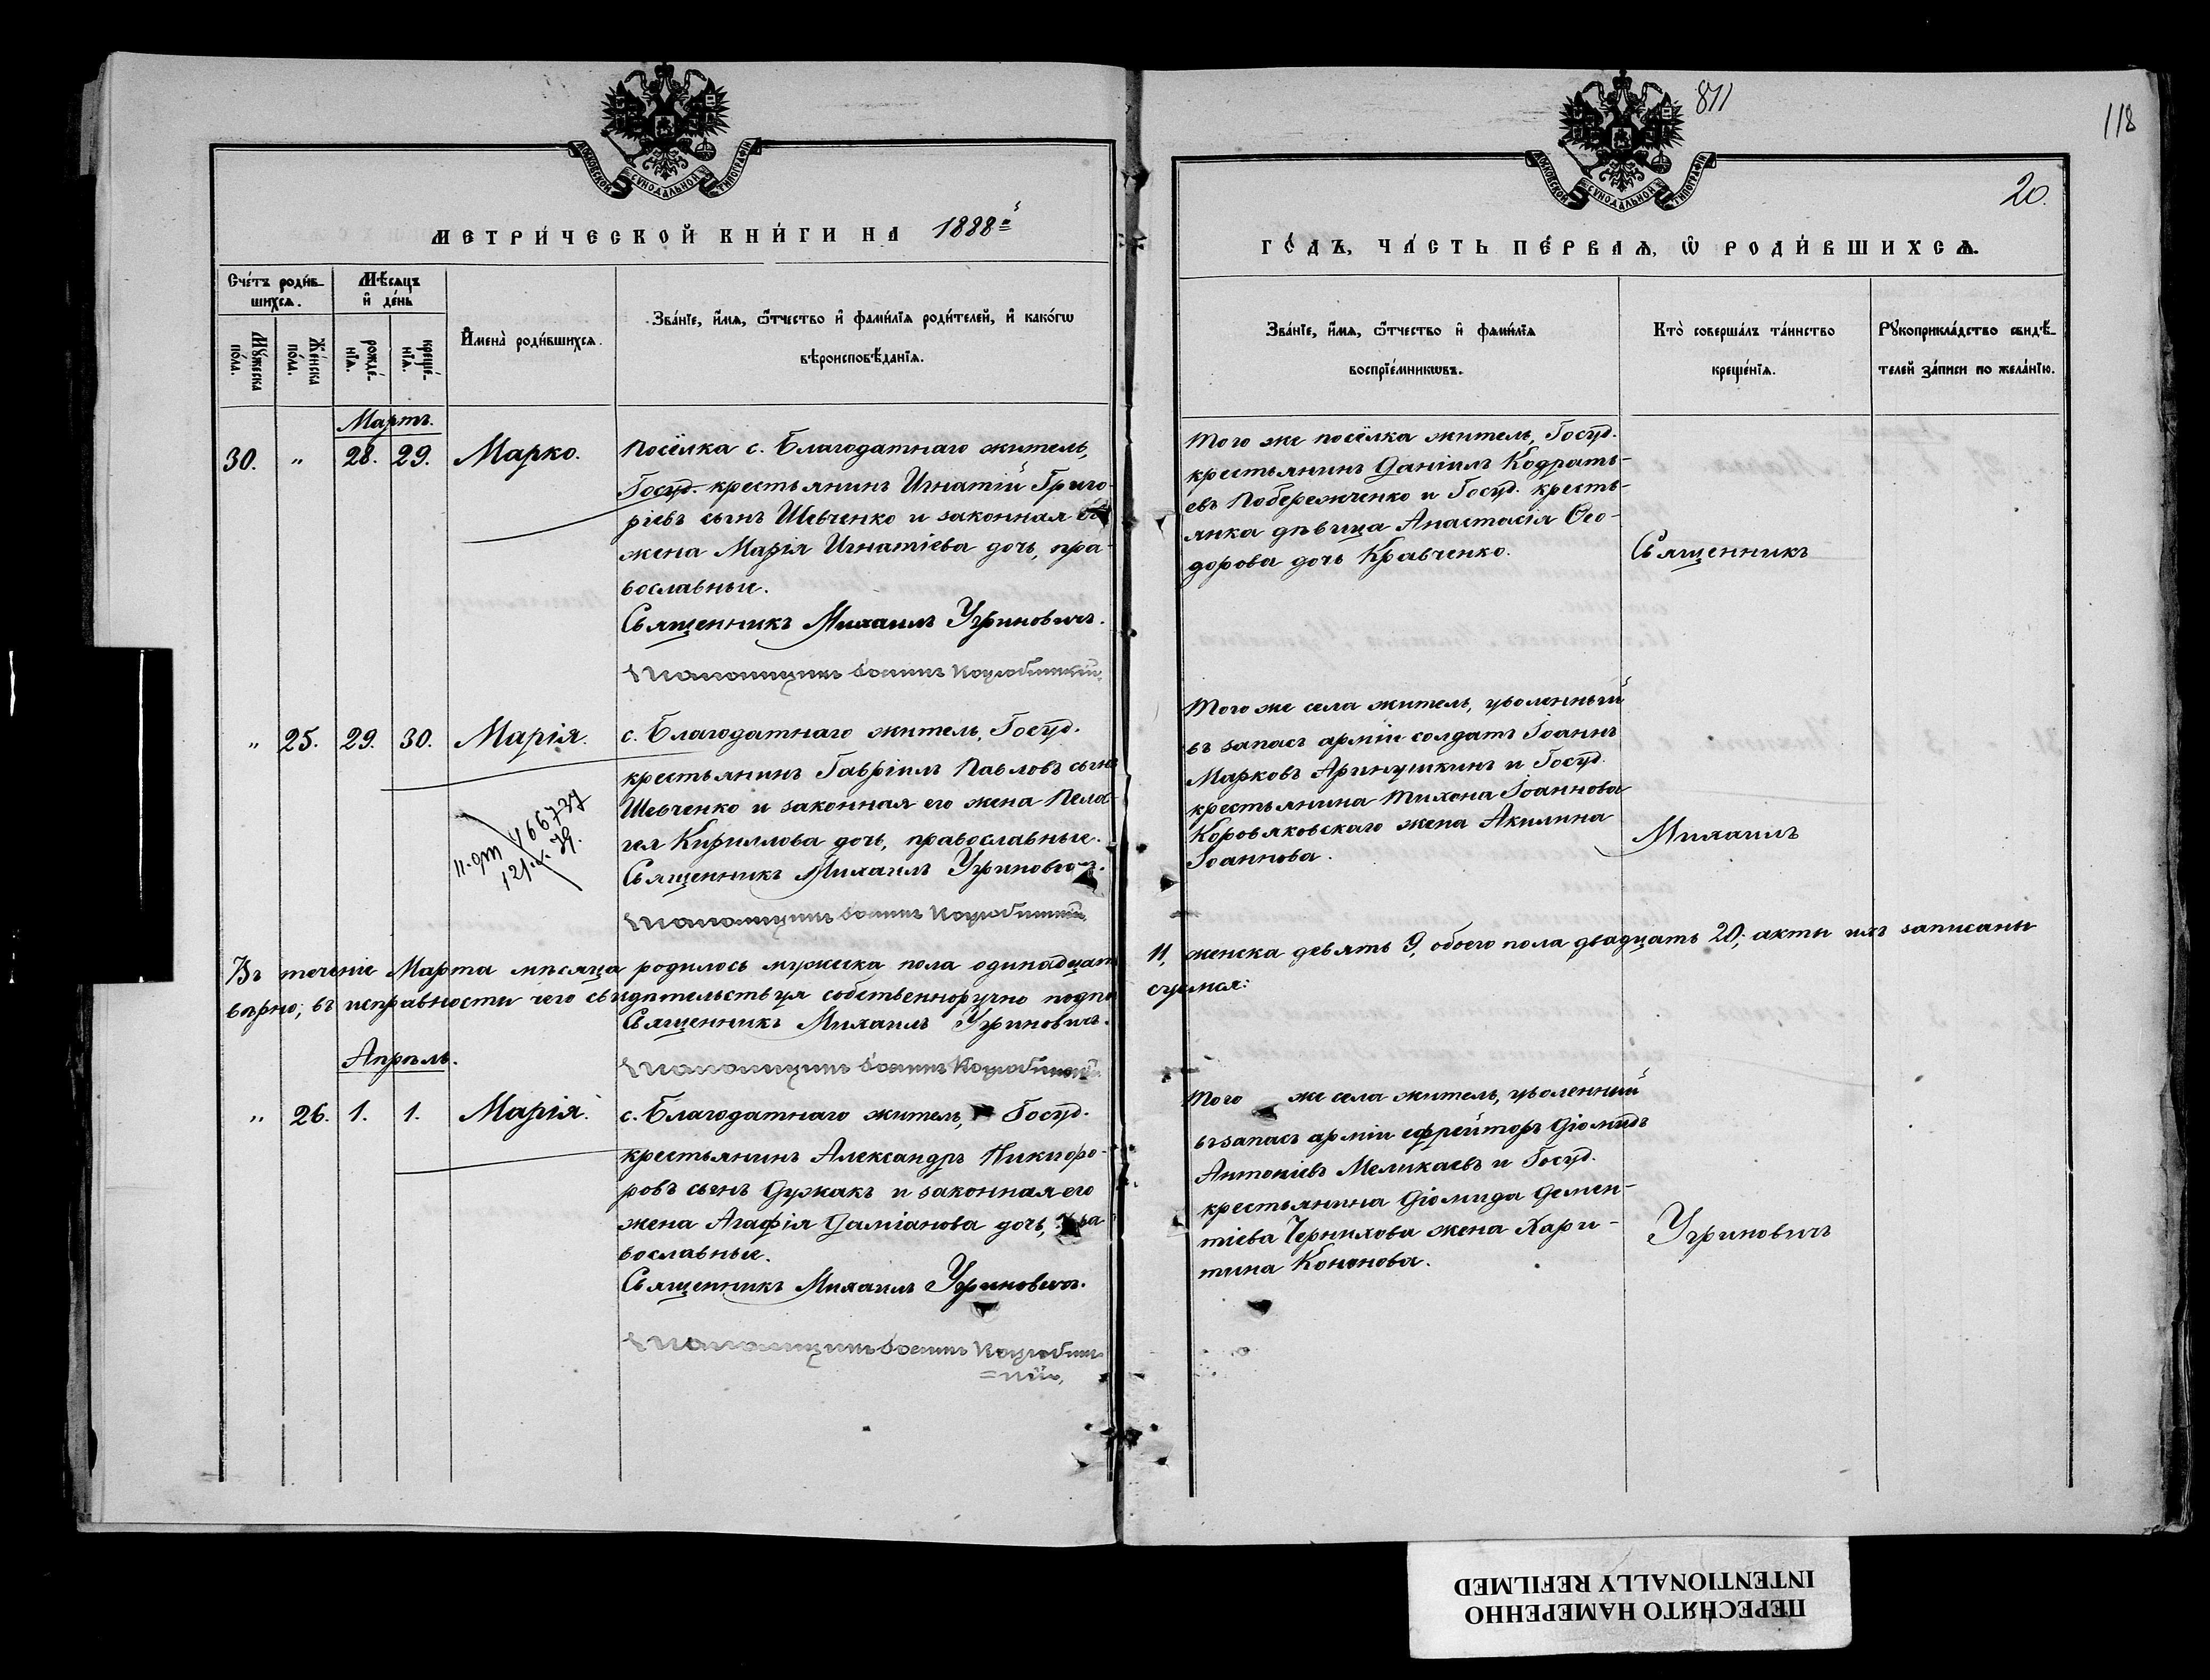 МОСКОВСКОЙ СѴНОДАЛЬНОЙ ТИПОГРАФІИ
МЕТРИ́ЧЕСКОЙ КНИ́ГИ НА 1888й
Сче́тъ роди́в-
шихсѧ.
Мѣ́сяцъ
и҆ де́нь
Мꙋ́жеска
по́ла.
Же́нска
по́ла.
рожде́-
нїѧ.
креще́-
нїѧ.
И҆мена̀ роди́вшихсѧ.
Зва́нїе, и҆́мѧ, ѻ҆́тчество и҆ фами́лїѧ роди́телей, и҆ како́гѡ
вѣроисповѣ́данїѧ.
Мартъ.
30. " 28. 29. Марко.
Посёлка с. Благодатнаго житель,
Госуд. крестьянинъ Игнатій Григо-
ріевъ сынъ Шевченко и законная его
жена Марія Игнатіева дочь, пра-
вославные.
Священникъ Михаилъ Угриновичъ.
Псаломщикъ Іоаннъ
" 25. 29. 30. Марія.
с. Благодатнаго житель, Госуд.
крестьянинъ Гавріилъ Павловъ сынъ
Шевченко и законная его жена Пела-
гея Кириллова дочь, православные.
Священникъ Михаилъ Угриновичъ.
Псаломщикъ Іоаннъ
Въ теченіе Марта мѣсяца родилось мужеска пола одинадцать
вѣрно; въ исправности чего свидѣтельствуя собственноручно подпи
Священникъ Михаилъ Угриновичъ.
Псаломщикъ Іоаннъ
Апрѣль.
" 26. 1. 1. Марія.
с. Благодатнаго житель, Госуд.
крестьянинъ Александръ Никифо-
ровъ сынъ Дужакъ и законная его
жена Агафія Даміанова дочь, пра
вославные.
Священникъ Михаилъ Угриновичъ.
Псаломщикъ Іоаннъ
811
118
20.
МОСКОВСКОЙ СѴНОДАЛЬНОЙ ТИПОГРАФІИ
ГО́ДЪ, ЧА́СТЬ ПЕ́РВАѦ, Ѡ҆ РОДИ́ВШИХСѦ.
Зва́нїе, и҆́мѧ, ѻ҆́тчество и҆ фами́лїѧ
воспрїе́мникѡвъ.
Кто̀ соверша́лъ та́инство
креще́нїѧ.
Рꙋкоприкла́дство свидѣ́-
телей за́писи по жела́нїю.
Того же посёлка житель, Госуд.
крестьянинъ Даніилъ Кодрать-
евъ Побережченко и Госуд. кресть-
янка дѣвица Анастасія Ѳео-
дорова дочь Кравченко.
Священникъ
Того же села житель, уволенный
въ запасъ арміи солдатъ Іоаннъ
Марковъ Аринушкинъ и Госуд.
крестьянина Тихона Іоаннова
Коровяковскаго жена Акилина
Іоаннова.
Михаилъ
11, женска девять 9, обоего пола двадцать 20; акты ихъ записаны
суемся:
Того же села житель, уволенный
въ запасъ арміи ефрейторъ Діомидъ
Антоніевъ Меликаевъ и Госуд.
крестьянина Діомида Демен-
тіева Чернихова жена Хари-
тина Кононова.
Угриновичъ
ПЕРЕСНЯТО НАМЕРЕННО
INTENTIONALLY REFILMED